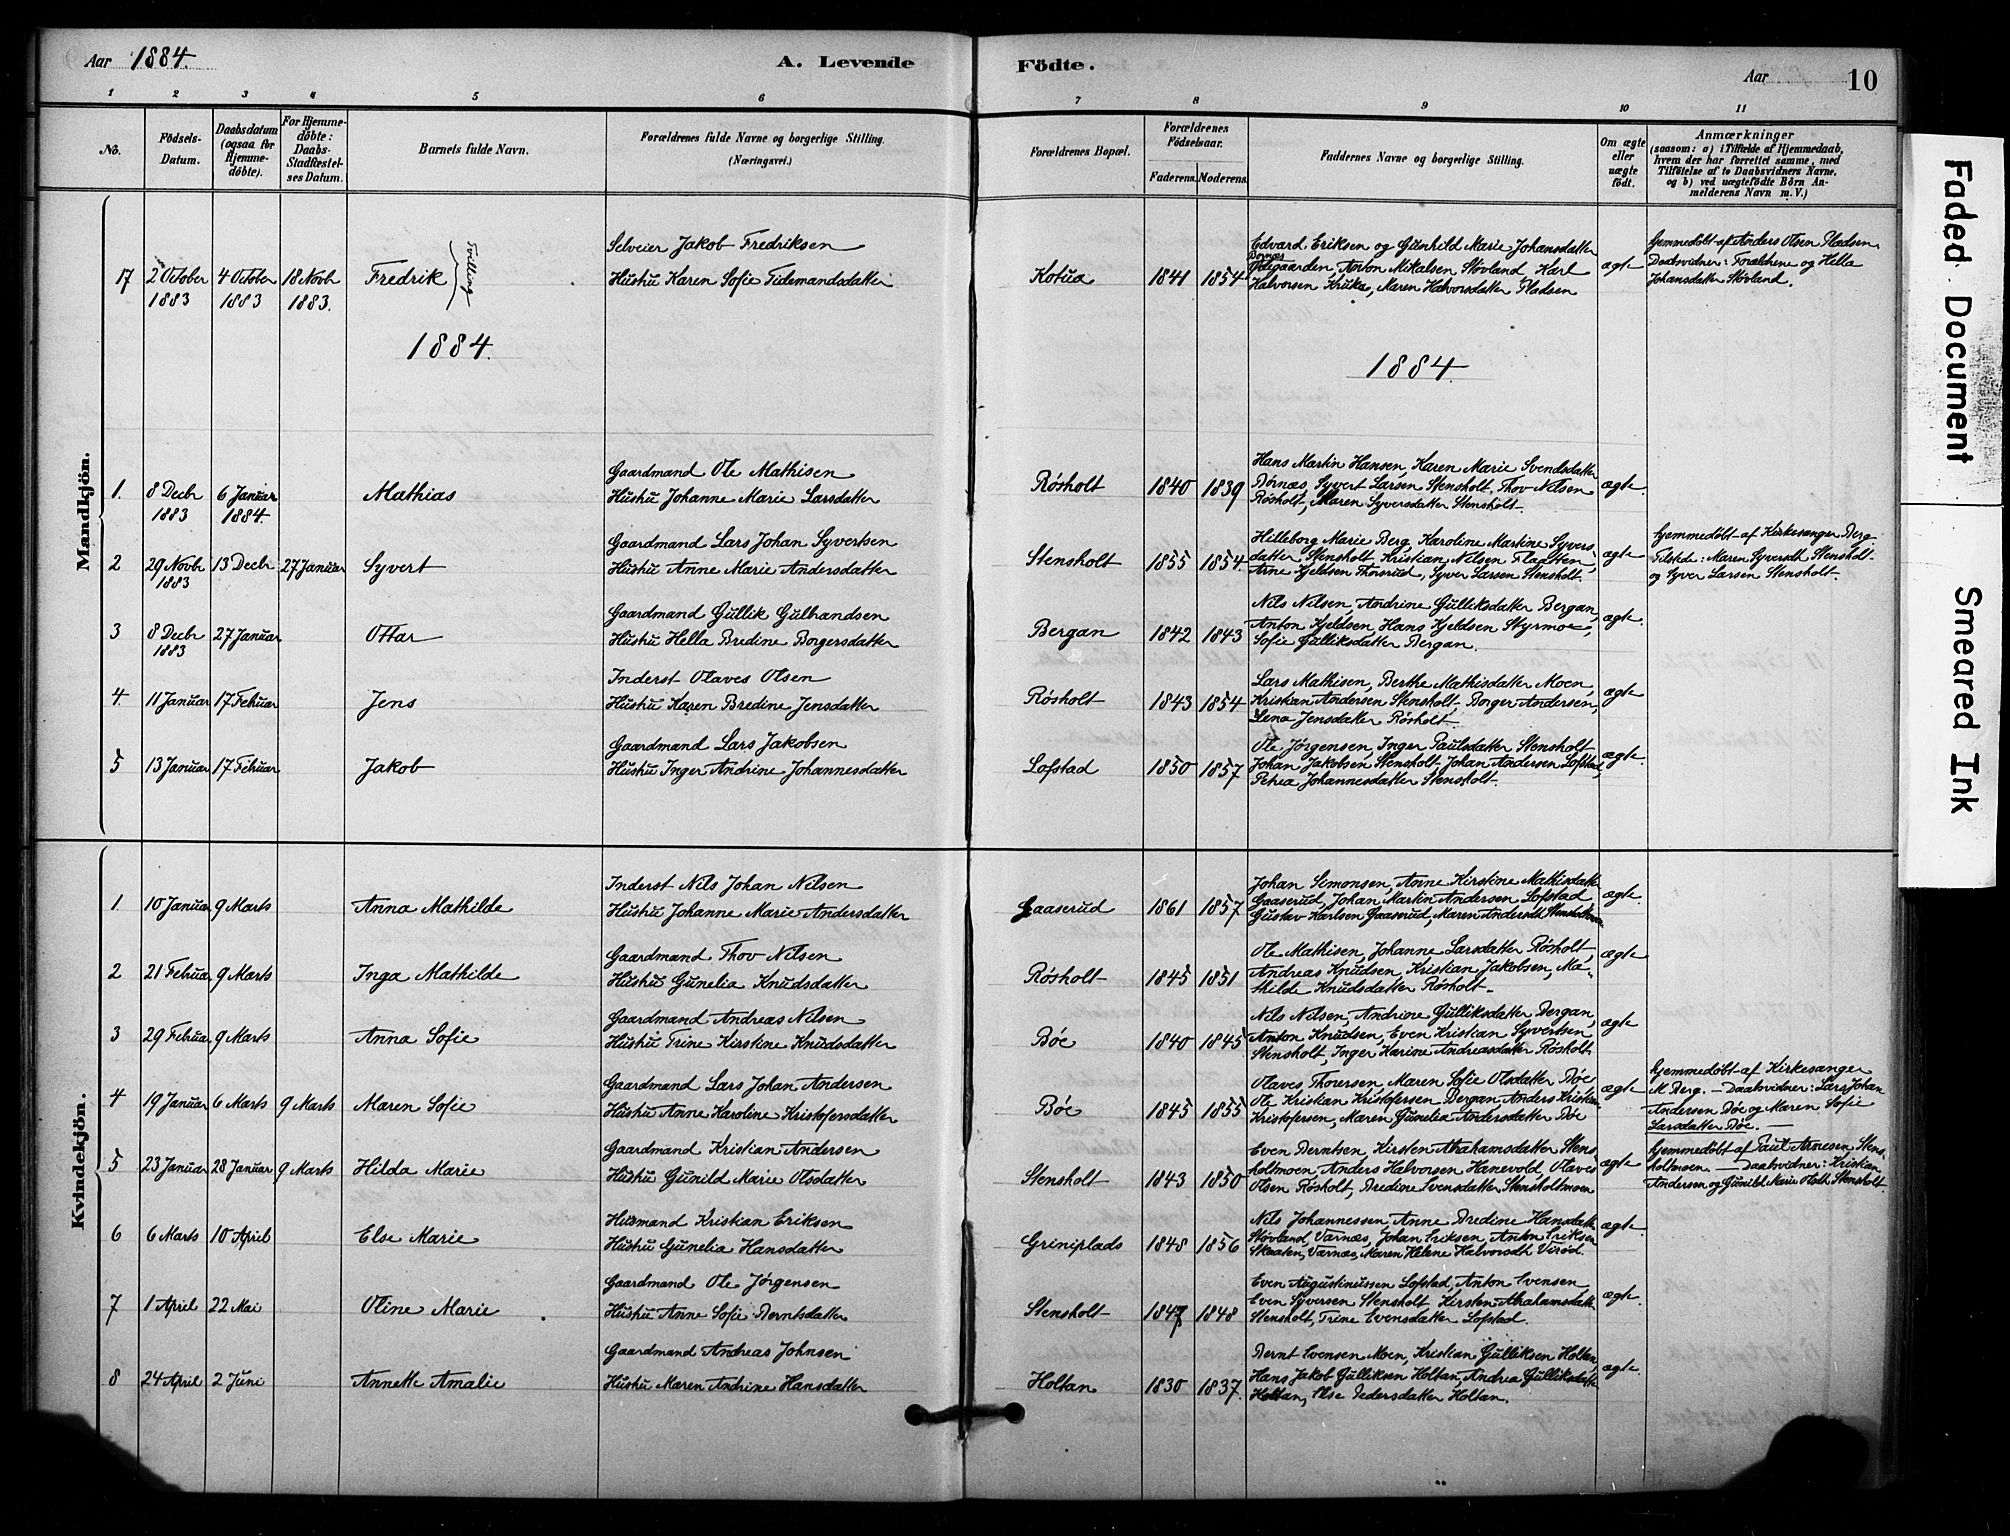 Aar 1884.
A. Levende Födte.
Aar 10
1 2 3 4 5 6 7 8 9 10 11
No.
Födsels-Datum.
Daabsdatum (ogsaa for Hjemme-döbte).
For Hjemme-döbte: Daabs-Stadfæstel-ses Datum.
Barnets fulde Navn.
Forældrenes fulde Navne og borgerlige Stilling. (Næringsvei.)
Forældrenes Bopæl.
Forældrenes Födselsaar.
Faderens. Moderens.
Faddernes Navne og borgerlige Stilling.
Om ægte eller uægte födt.
Anmærkninger
(saasom: a) i Tilfælde af Hjemmedaab,
hvem der har forrettet samme, med
Tilföielse af to Daabsvidners Navne,
og b) ved uægtefödte Börn An-
melderens Navn m. V.)
Mandkjön.
17 2 October 1883 4 October 1883 18 Novb 1883. Fredrik Tvilling
Selveier Jakob Fredriksen
Hustru Karen Sofie Tidemandsdatter
Kotua 1841 1854
Edvard Eriksen og Gunhild Marie Johansdatter
Ødegaarden, Anton Mikalsen Støvland Karl
Halvorsen Kruka, Maren Halvorsdatter Pladsen
ægte
Hjemmedøbt af Anders Olsen Pladsen
Daabsvidner: Forældrene og Hella
Johansdatter Støvland.
1884.
1884.
1. 8 Decbr 1883 6 Januar 1884. Mathias
Gaardmand Ole Mathisen
Hustru Johanne Marie Larsdatter
Røsholt 1840 1839
Hans Martin Hansen, Karen Marie Svendsdatter
Børnæs, Syvert Larsen Stensholt, Thov Nilsen
Røsholt, Maren Syversdatter Stensholt.
ægte.
2 29 Novbr 1883 13 Decbr 27 Januar Syvert
Gaardmand Lars Johan Syvertsen
Hustru Anne Marie Andersdatter
Stensholt 1855 1854.
Hilleborg Marie Berg, Karoline Martine Syvers
datter Stensholt, Kristian Nilsen Fladsten,
Arne Kjeldsen Thorsrud, Syver Larsen Stensholt.
ægte
Hjemmedøbt af Kirkesanger Berg
Tilstede: Maren Syversdt Stensholt
og Syver Larsen Stensholt.
3 8 Decbr 1883 27 Januar Ottar
Gaardmand Gullik Gulbrandsen
Hustru Hella Bredine Borgersdatter
Bergan 1842 1843
Nils Nilsen, Andrine Gulliksdatter Bergan,
Anton Kjeldsen, Hans Kjeldsen Styrmoe,
Sofie Gulliksdatter Bergan.
ægte.
4. 11 Januar 17 Februar Jens
Inderst Olaves Olsen
Hustru Karen Bredine Jensdatter
Røsholt 1843 1854
Lars Mathisen, Berthe Mathisdatter Moen,
Kristian Andersen Stensholt, Borger Andersen,
Lena Jensdatter Røsholt.
ægte
5 13 Januar 17 Februar Jakob
Gaardmand Lars Jakobsen
Hustru Inger Andrine Johannesdatter
Lofstad 1850 1857
Ole Jørgensen, Inger Paulsdatter Stensholt
Johan Jakobsen Stensholt, Johan Andersen Lofstad,
Petrea Johannesdatter Stensholt.
ægte.
Kvindekjön.
1 10 Januar 9 Marts Anna Mathilde
Inderst Nils Johan Nilsen
Hustru Johanne Marie Andersdatter
Gaaserud 1861 1857
Johan Simonsen, Anne Kirstine Mathisdatter
Gaaserud, Johan Martin Andersen Lofstad
Gustav Karlsen Gaaserud, Maren Andersdt Stensholtmoen
ægte.
2 21 Februar 9 Marts Inga Mathilde
Gaardmand Thov Nilsen
Hustru Gunelia Knudsdatter
Røsholt 1845 1851
Ole Mathisen, Johanne Larsdatter Røsholt,
Andreas Knudsen, Kristian Jakobsen, Ma-
thilde Knudsdatter Røsholt.
ægte
3 29 Februar 9 Marts Anna Sofie
Gaardmand Andreas Nilsen
Hustru Trine Kirstine Knudsdatter
Bøe 1840 1845
Nils Nilsen, Andrine Gulliksdatter Bergan,
Anton Knudsen, Even Kristian Syvertsen,
Stensholt, Inger Karine Andreasdatter Røsholt
ægte
4 19 Januar 6 Marts 9 Marts Maren Sofie
Gaardmand Lars Johan Andersen
Hustru Anne Karoline Kristofersdatter
Bøe 1845 1855
Olaves Thoresen, Maren Sofie Olsdatter Bøe
Ole Kristian Kristofersen Bergan Anders Kristian
Kristofersen, Maren Gunelia Andersdatter Bøe
ægte
Hjemmedøbt af Kirkesanger
M Berg. — Daabsvidner: Lars Johan
Andersen Bøe og Maren Sofie
Larsdatter Bøe. —
5 23 Januar 28 Januar 9 Marts Hilda Marie
Gaardmand Kristian Andersen
Hustru Gunild Marie Olsdatter
Stensholt 1843 1850
Even Berntsen, Kirsten Abrahamsdatter Stens
holtmoen, Anders Halvorsen Hanevold, Olaves
Olsen Røsholt, Bredine Svensdatter Stensholtmoen
ægte
Hjemmedøbt af Paul Arnesen Stens-
holtmoen. — Daabsvidner: Kristian
Andersen og Gunild Marie Olsdt. Stensholt.
6 6 Marts 10 April Else Marie
Husmand Kristian Eriksen
Hustru Gunelia Hansdatter
Griniplads 1848 1856
Nils Johannessen, Anne Bredine Hansdatter
Støvland, Varnæs, Johan Eriksen, Anton Eriksen
Skaaten, Varnæs, Maren Helene Halvorsdt Virød.
ægte.
7 1 April 22 Mai Oline Marie
Gaardmand Ole Jörgensen
Hustru Anne Sofie Berntsdatter
Stensholt 1847 1848
Even Augustinussen Lofstad, Anton Evensen
Even Syversen Stensholt Kirsten Abrahamsdatter
Stensholt, Trine Evensdatter Lofstad.
ægte.
8 24 April 2 Juni Annette Amalie
Gaardmand Andreas Johnsen
Hustru Maren Andrine Hansdatter
Holtan 1830 1837.
Bernt Evensen Moen, Kristian Gulliksen Holtan,
Hans Jakob Gulliksen Holtan, Andrea Gulliksdatter
Holtan, Else Pedersdatter Holtan.
ægte.
Faded Document
Smeared Ink